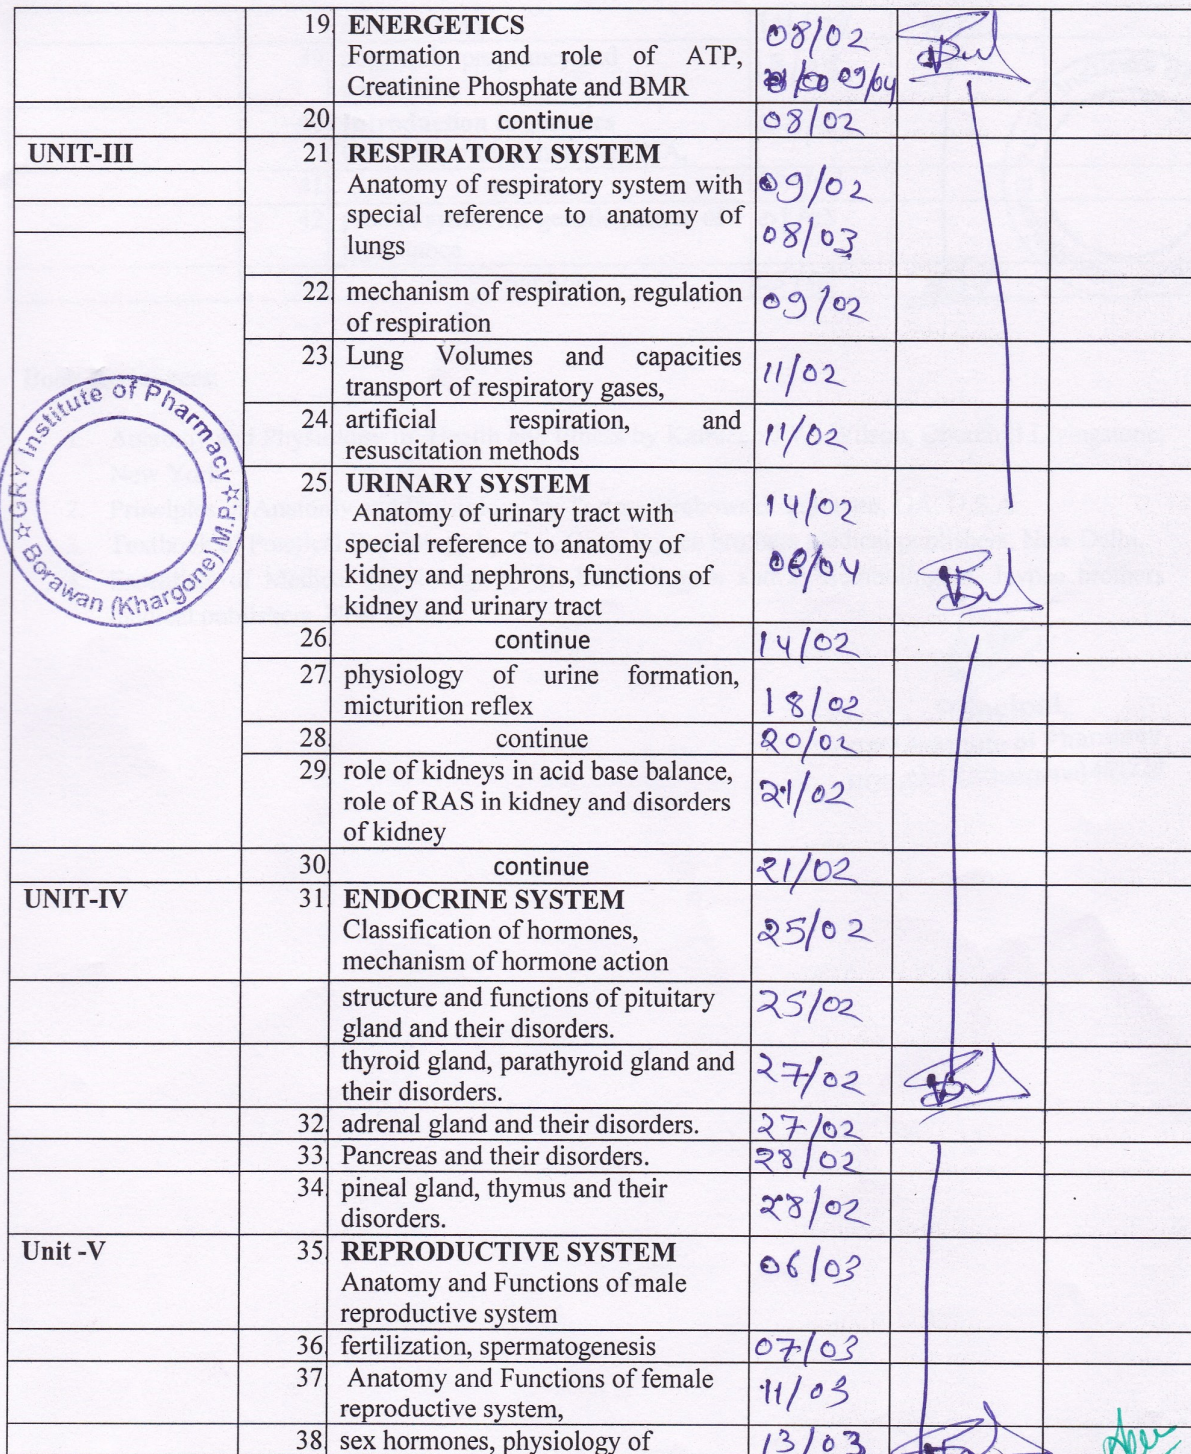 19. ENERGETICS
Formation and role of ATP,
Creatinine Phosphate and BMR
08/02
09/04
20. continue
08/02
UNIT-III
21. RESPIRATORY SYSTEM
Anatomy of respiratory system with
special reference to anatomy of
lungs
09/02
08/03
22. mechanism of respiration, regulation
of respiration
09/02
23. Lung Volumes and capacities
transport of respiratory gases,
11/02
24. artificial respiration, and
resuscitation methods
11/02
GRY Institute of Pharmacy
Borawan (Khargone) M.P.
25. URINARY SYSTEM
Anatomy of urinary tract with
special reference to anatomy of
kidney and nephrons, functions of
kidney and urinary tract
14/02
08/04
26. continue
14/02
27. physiology of urine formation,
micturition reflex
18/02
28. continue
20/02
29. role of kidneys in acid base balance,
role of RAS in kidney and disorders
of kidney
21/02
30. continue
21/02
UNIT-IV
31. ENDOCRINE SYSTEM
Classification of hormones,
mechanism of hormone action
25/02
structure and functions of pituitary
gland and their disorders.
25/02
thyroid gland, parathyroid gland and
their disorders.
27/02
32. adrenal gland and their disorders.
27/02
33. Pancreas and their disorders.
28/02
34. pineal gland, thymus and their
disorders.
28/02
Unit -V
35. REPRODUCTIVE SYSTEM
Anatomy and Functions of male
reproductive system
06/03
36. fertilization, spermatogenesis
07/03
37. Anatomy and Functions of female
reproductive system,
11/03
38. sex hormones, physiology of
13/03